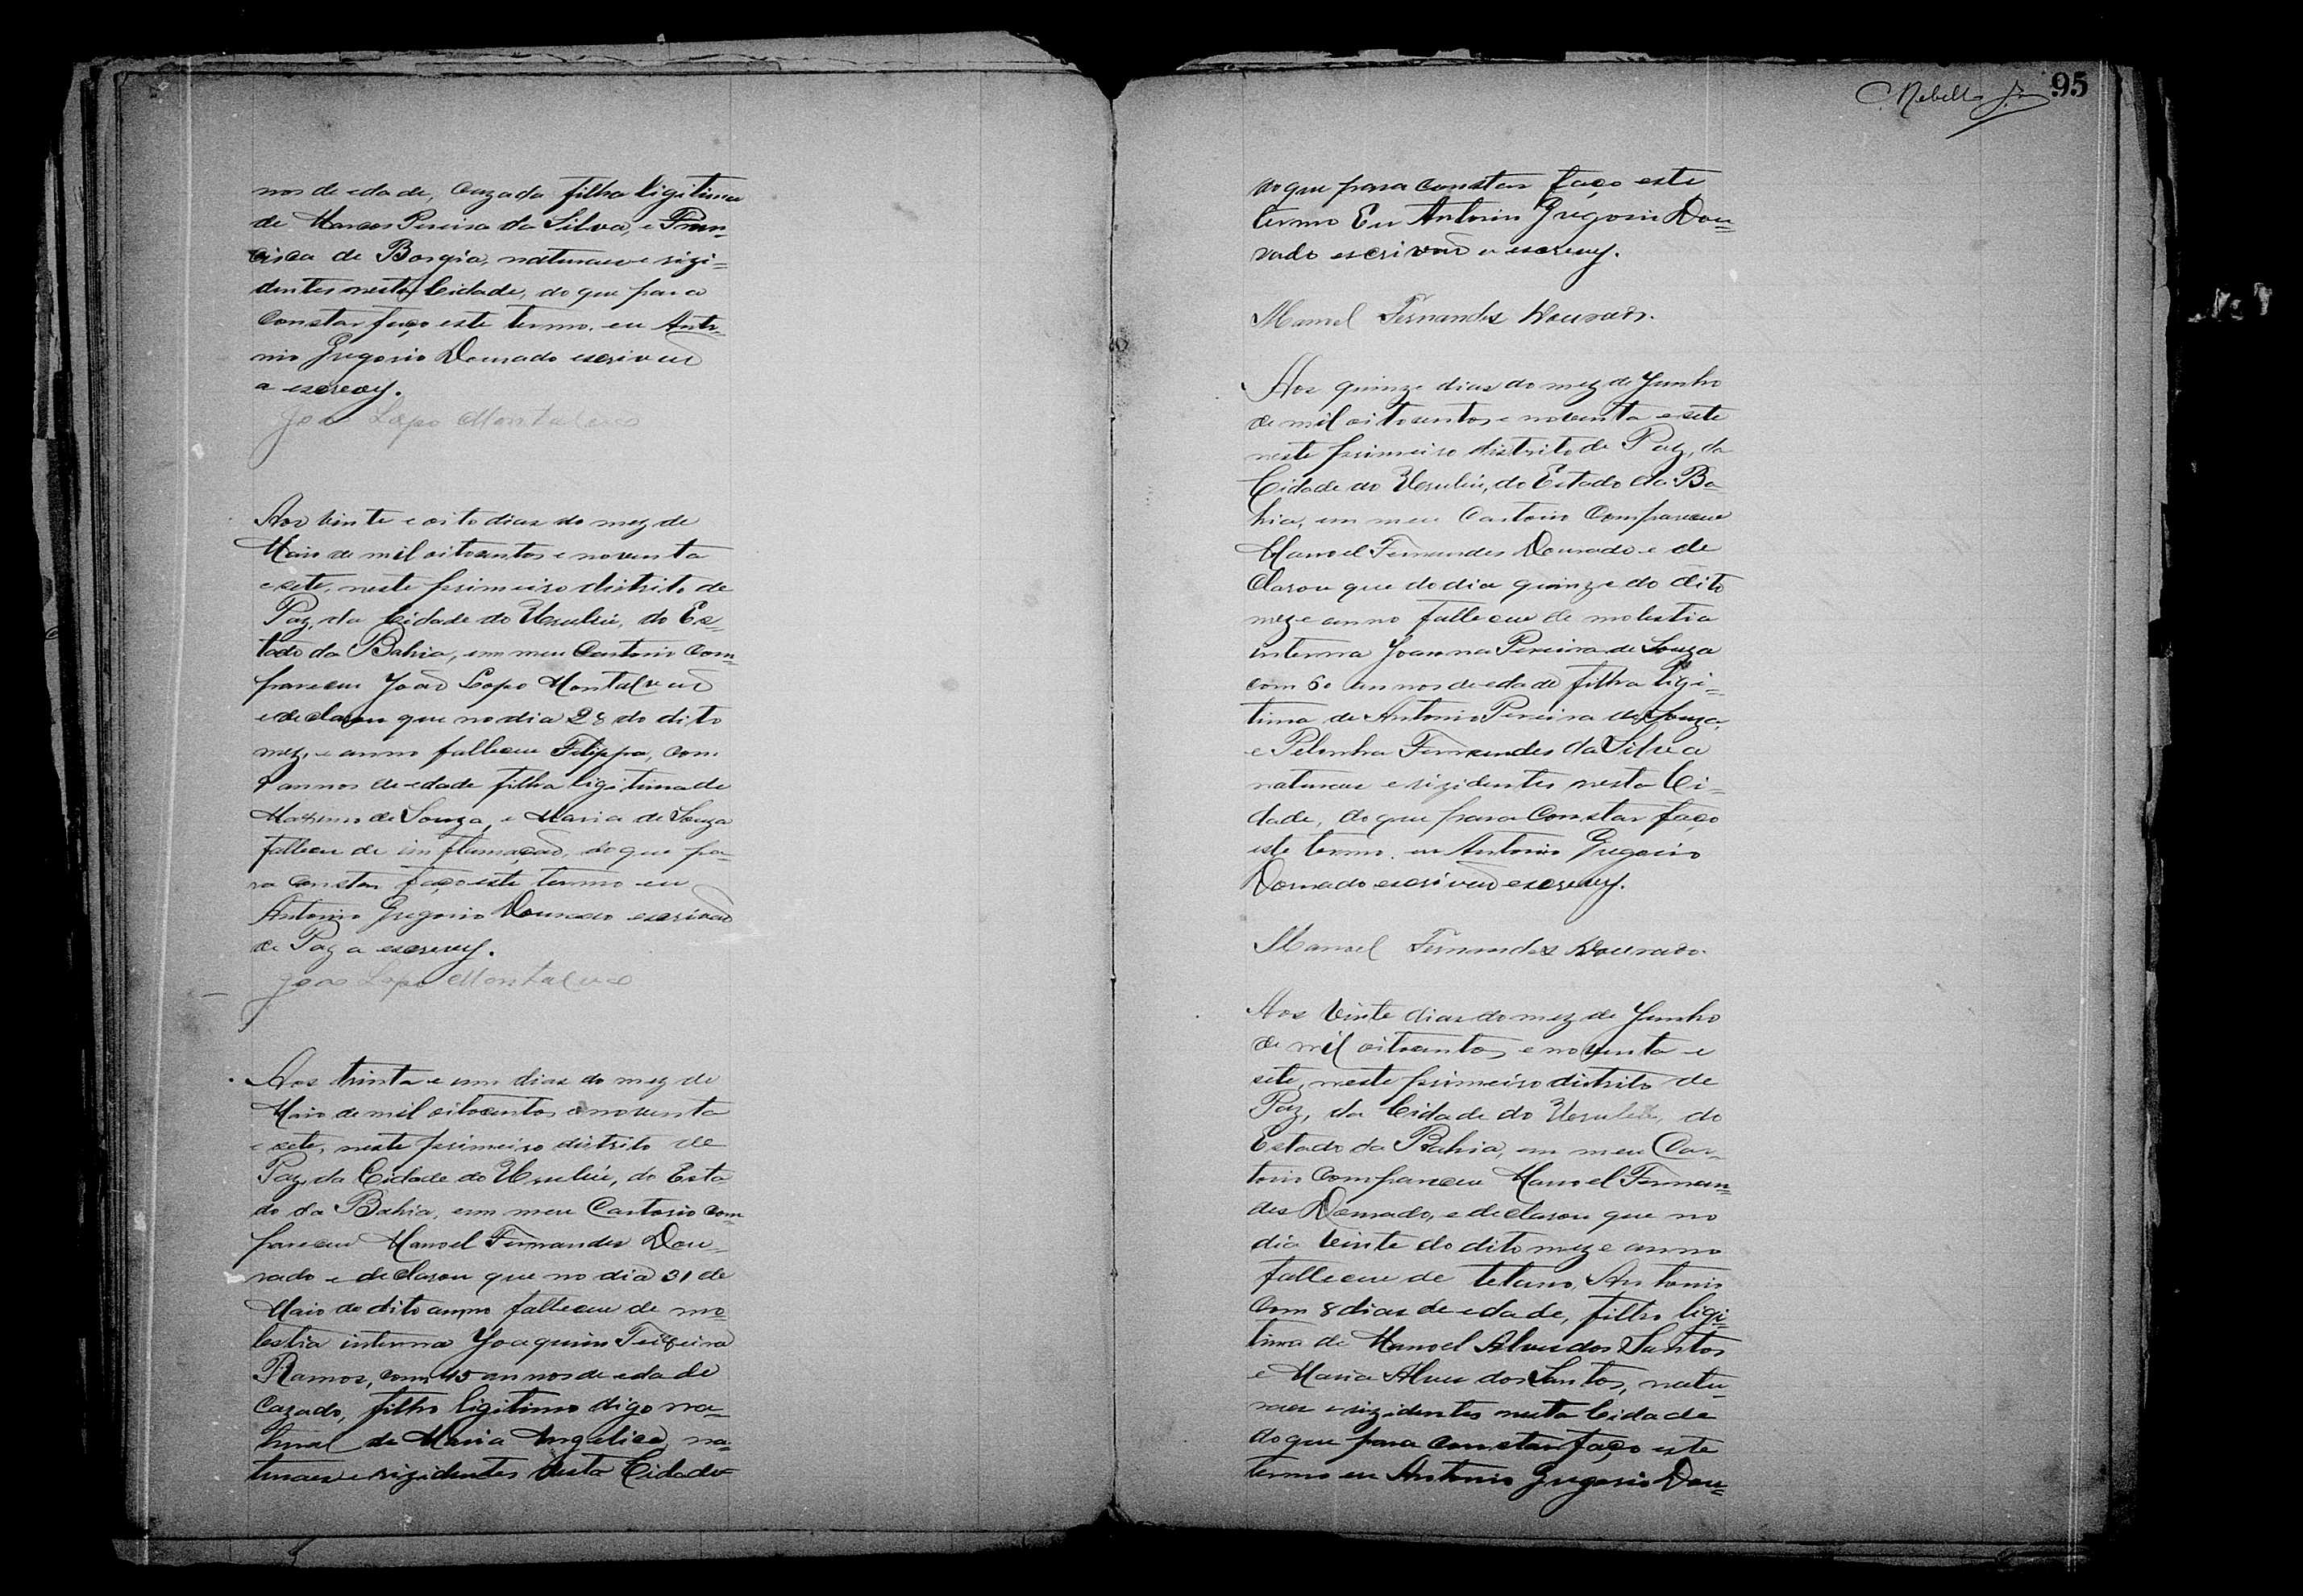 nos de edade, cazada filha ligitima
de Marcos Pereira da Silva, e Fran=
cisca de Borgia, naturaes e rizi=
dentes nesta Cidade, do que para
Constar faço este termo. eu Anto-
nio Gregorio Dourado escrivaõ
a escrevy.
João Lopo Montalvão
Aos vinte e oito dias do mez de
Maio de mil oitocentos e noventa
e sete, neste primeiro distrito de
Paz, da Cidade do Urubú, do Es=
tado da Bahia, em meu Cartorio Com=
pareceu João Lopo Montalvaõ
e declarou que no dia 28 do dito
mez, e anno falleceu Filippa, com
annos de edade filha ligitima de
de Souza, e Maria de Souza
falleceu de inflamaçaõ, do que pa-
ra constar faço este termo eu
Antonio Gregorio Dourado escrivaõ
de Paz a escrevy.
João Lopo Montalvão
Aos trinta e um dias do mez de
Maio de mil oitocentos e noventa
e sete, neste primeiro distrito de
Paz, da Cidade do Urubú, do Esta
do da Bahia, em meu Cartorio com=
pareceu Manoel Fernandes Dou-
rado e declarou que no dia 31 de
Maio do dito anno falleceu de mo=
lestia interna Joaquim Teixeira
Ramos, com 45 annos de edade
Cazado, filho ligitimo digo na=
tural de Maria Angelica, na=
turaes e rizidentes nesta Cidade
95
C. Rebello Jr.
do que para constar faço este
termo Eu Antonio Gregorio Dou=
rado escrivaõ a escrevy.
Manoel Fernandes Dourado.
Aos quinze dias do mez de Junho
de mil oitocentos e noventa e sete
neste primeiro distrito de Paz, da
Cidade do Urubú, do Estado da Ba=
hia, em meu Cartorio Compareceu
Manoel Fernandes Dourado e de
clarou que do dia quinze do dito
mez e anno falleceu de molestia
interna Joanna Pereira de Souza
com 60 annos de edade filha ligi=
tima de Antonio Pereira de Souza,
e Fernandes da Silva
naturaes e rizidentes nesta Ci=
dade, do que para Constar faço
este termo. eu Antonio Gregorio
Dourado escrivaõ escrevy.
Manoel Fernandes Dourado.
Aos vinte dias do mez de Junho
de mil oitocentos e noventa e
sete, neste primeiro distrito de
Paz, da Cidade do Urubú, do
Estado da Bahia, em meu Car-
torio Compareceu Manoel Fernan=
des Dourado, e declarou que no
dia vinte do dito mez e anno
falleceu de tetano, Antonio
Com 8 dias de edade, filho ligi=
timo de Manoel Alves dos Santos
e Maria Alves dos Santos, natu=
raes e rizidentes nesta Cidade
do que para constar faço este
termo eu Antonio Gregorio Dou=